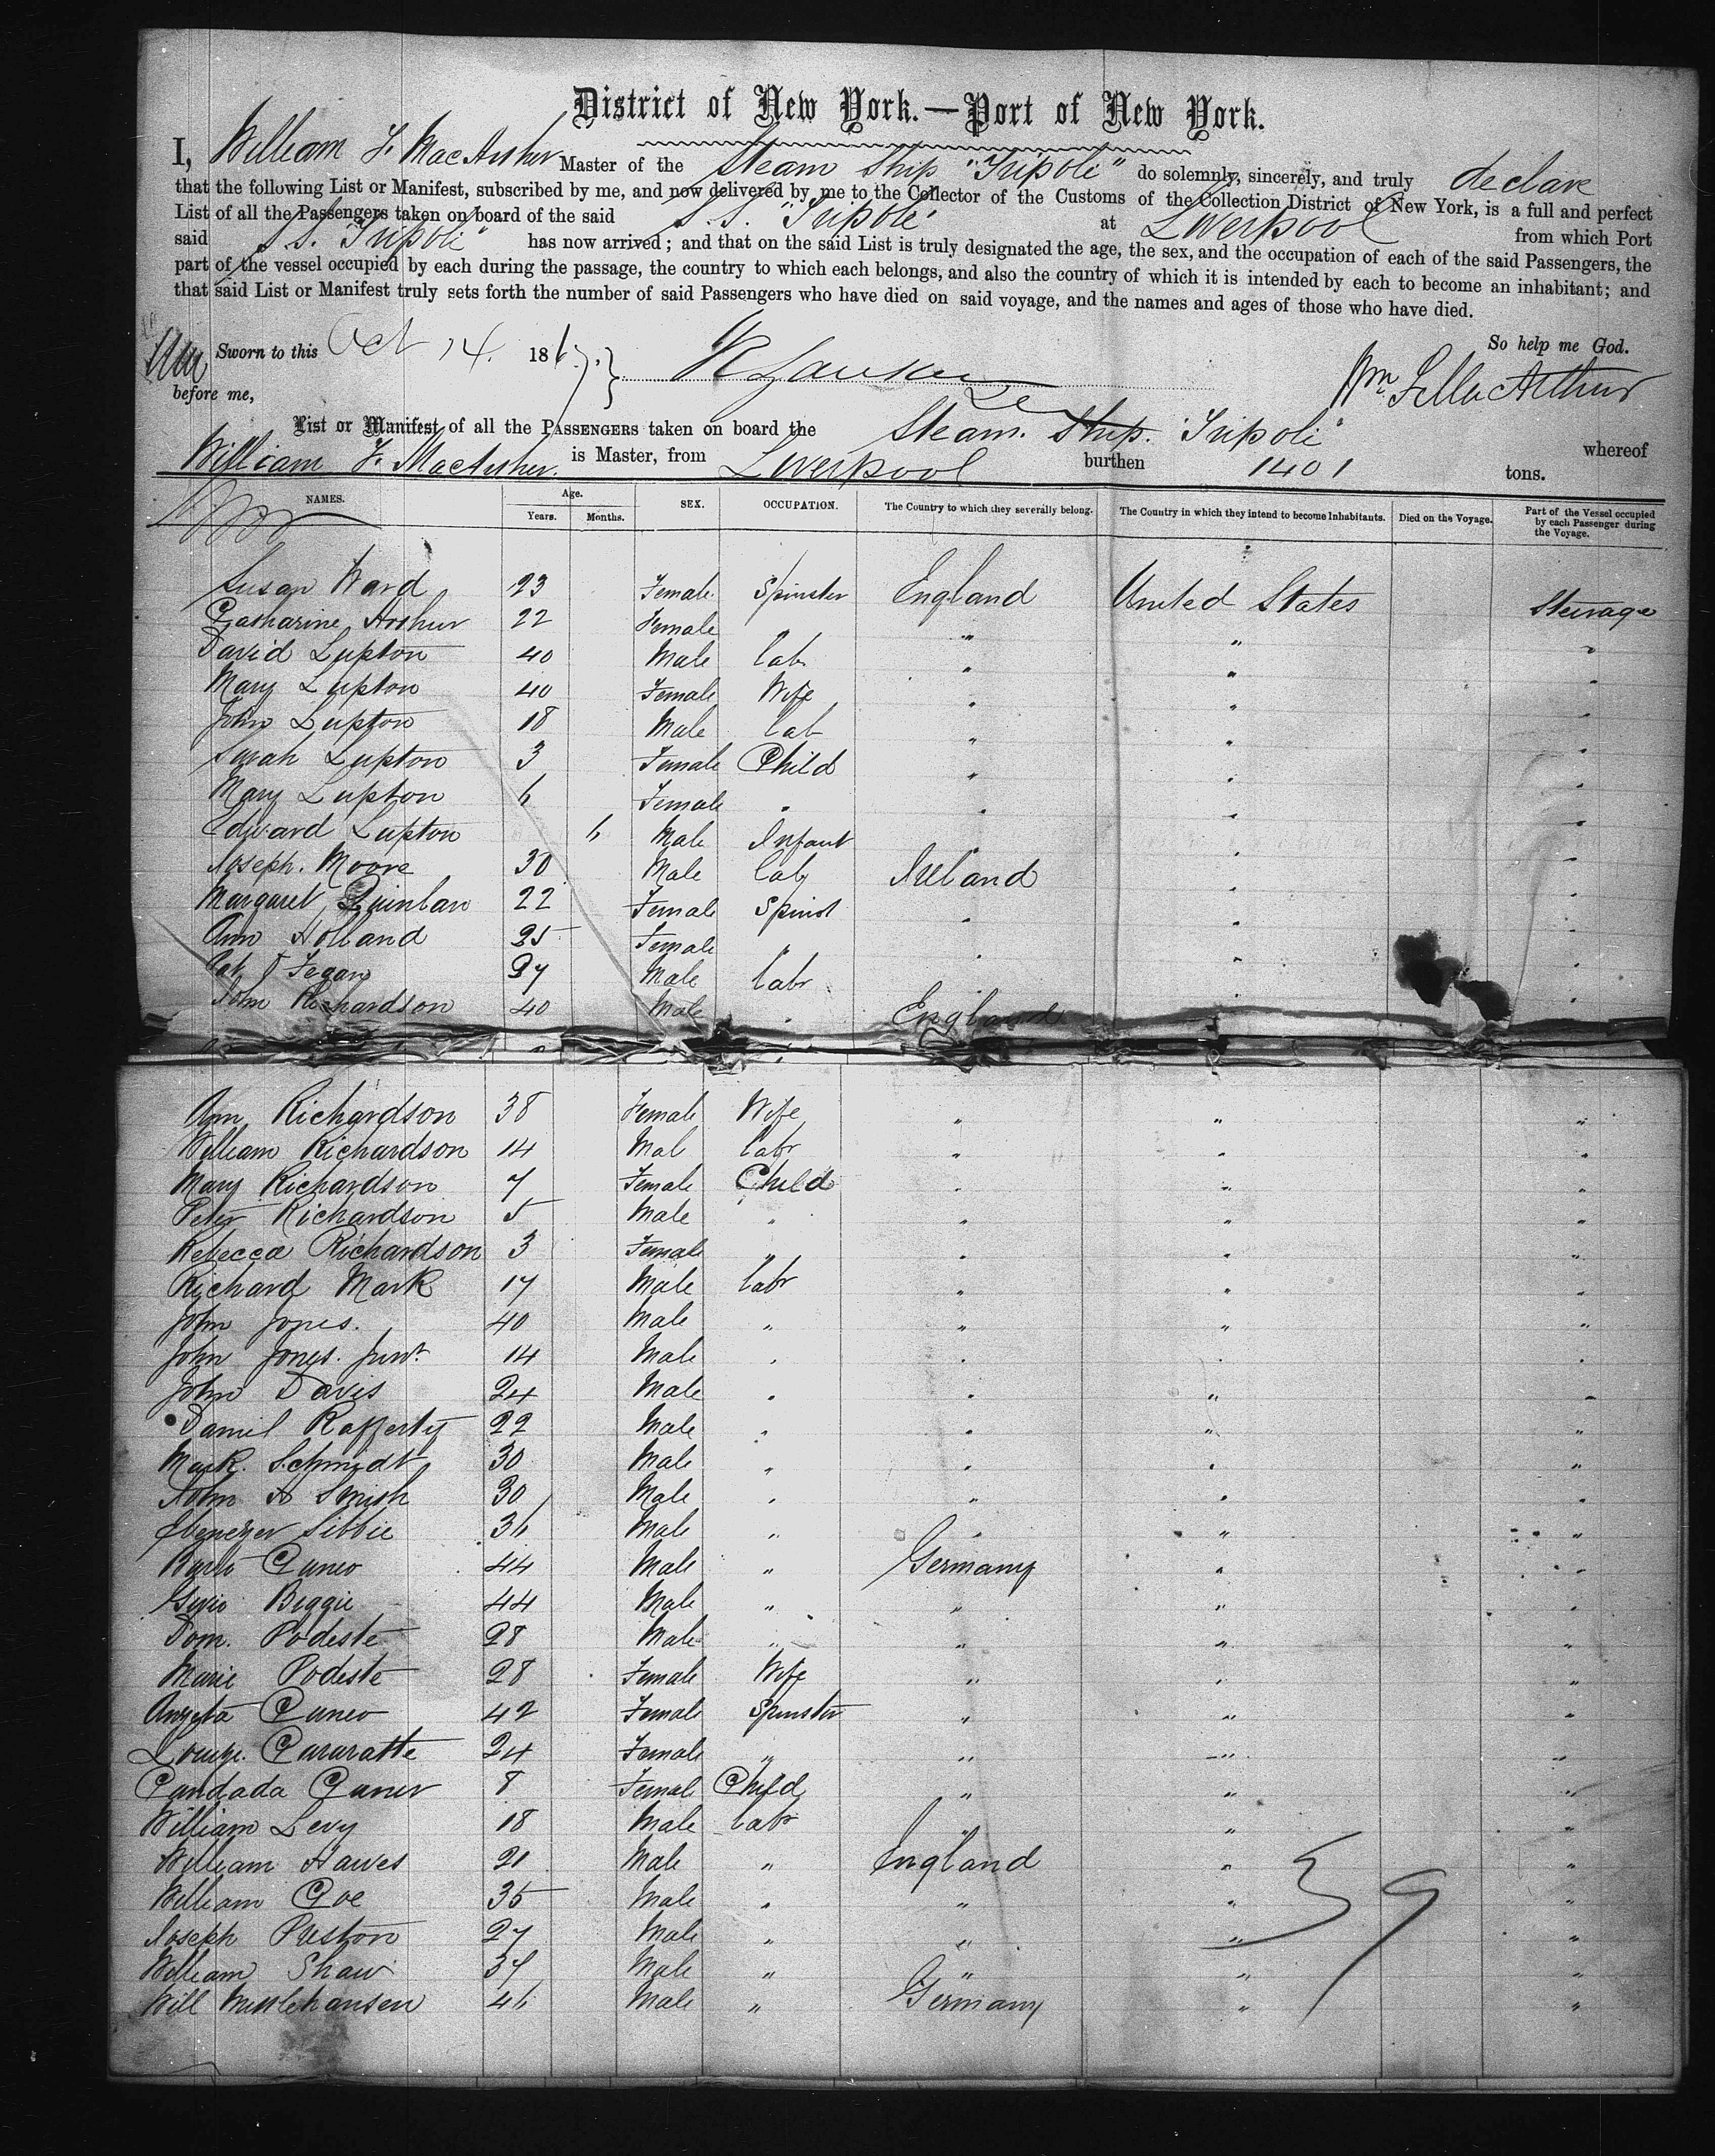 District of New York.—Port of New York.
I, William F. MacArthur Master of the Steam Ship "Tripoli" do solemnly, sincerely, and truly declare
that the following List or Manifest, subscribed by me, and now delivered by me to the Collector of the Customs of the Collection District of New York, is a full and perfect
List of all the Passengers taken on board of the said S.S. "Tripoli" at Liverpool from which Port
said S.S. "Tripoli" has now arrived; and that on the said List is truly designated the age, the sex, and the occupation of each of the said Passengers, the
part of the vessel occupied by each during the passage, the country to which each belongs, and also the country of which it is intended by each to become an inhabitant; and
that said List or Manifest truly sets forth the number of said Passengers who have died on said voyage, and the names and ages of those who have died.
So help me God.
Sworn to this Oct 14 1867. Wm F MacArthur
before me,
List or Manifest of all the PASSENGERS taken on board the Steam Ship "Tripoli" whereof
William F. MacArthur is Master, from Liverpool burthen 1401 tons.
NAMES. Age. Years. Months. SEX. OCCUPATION. The Country to which they severally belong. The Country in which they intend to become Inhabitants. Died on the Voyage. Part of the Vessel occupied by each Passenger during the Voyage.
Susan Ward 23 Female Spinster England United States Steerage
Catharine Arthur 22 Female " " " "
David Lupton 40 Male Lab " " "
Mary Lupton 40 Female Wife " " "
John Lupton 18 Male Lab " " "
Sarah Lupton 3 Female Child " " "
Mary Lupton 6 Female " " " "
Edward Lupton 6 Male Infant " "
Joseph Moore 30 Male Labr Ireland " "
Margaret Quinlan 22 Female Spinst " " "
Ann Holland 25 Female " " " "
Pat Fegan 27 Male Labr " "
John Richardson 40 Male " England
Ann Richardson 38 Female Wife " " "
William Richardson 14 Mal Labr " " "
Mary Richardson 7 Female Child " " "
Peter Richardson 5 Male " " " "
Rebecca Richardson 3 Female " " " "
Richard Mark 17 Male Labr " " "
John Jones. 40 Male " " " "
John Jones. Junr. 14 Male " " " "
John Davis 24 Male " " " "
Daniel Rafferty 22 Male " " " "
Mark. Schmidt 30 Male " " " "
John A Smish 30 Male " " " "
Ebenezer Sibbie 36 Male " " " "
Cuneo 44 Male " Germany " "
Biggie 44 Male " " " "
Dom. Podeste 28 Male " " " "
Marie Podeste 28 Female Wife " " "
Angela Cuneo 42 Female Spinster " " "
Louize. Cararatte 24 Female " " " "
Candada Cuneo 8 Female Child " " "
William Levy 18 Male Labr " " "
William Hawes 21 Male " England " "
William Coe 35 Male " " " "
Joseph Preston 27 Male " " " "
William Shaw 37 Male " " " "
Will 46 Male " Germany " "
39